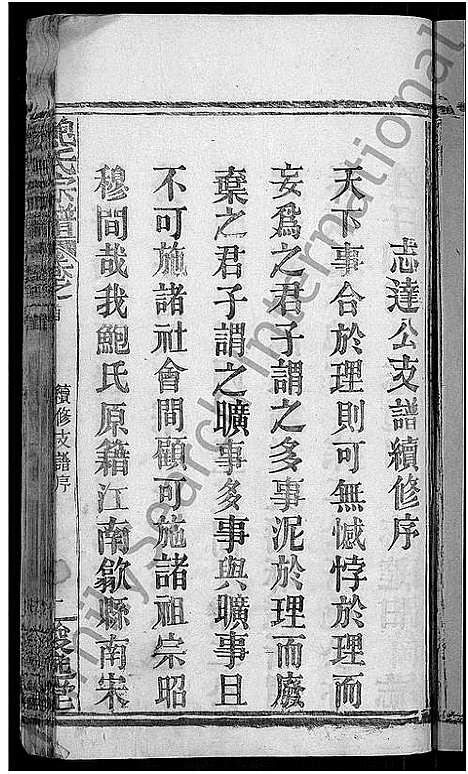 志達公支譜續修序
天下事合於理則可無憾悖於理而
妄爲之君子謂之多事泥於理而廢
棄之君子謂之曠事多事與曠事且
不可施諸社會間顧可施諸祖宗昭
穆間哉我鮑氏原籍江南歙縣南宋
鮑氏宗譜卷之首
續修支譜序
Search International